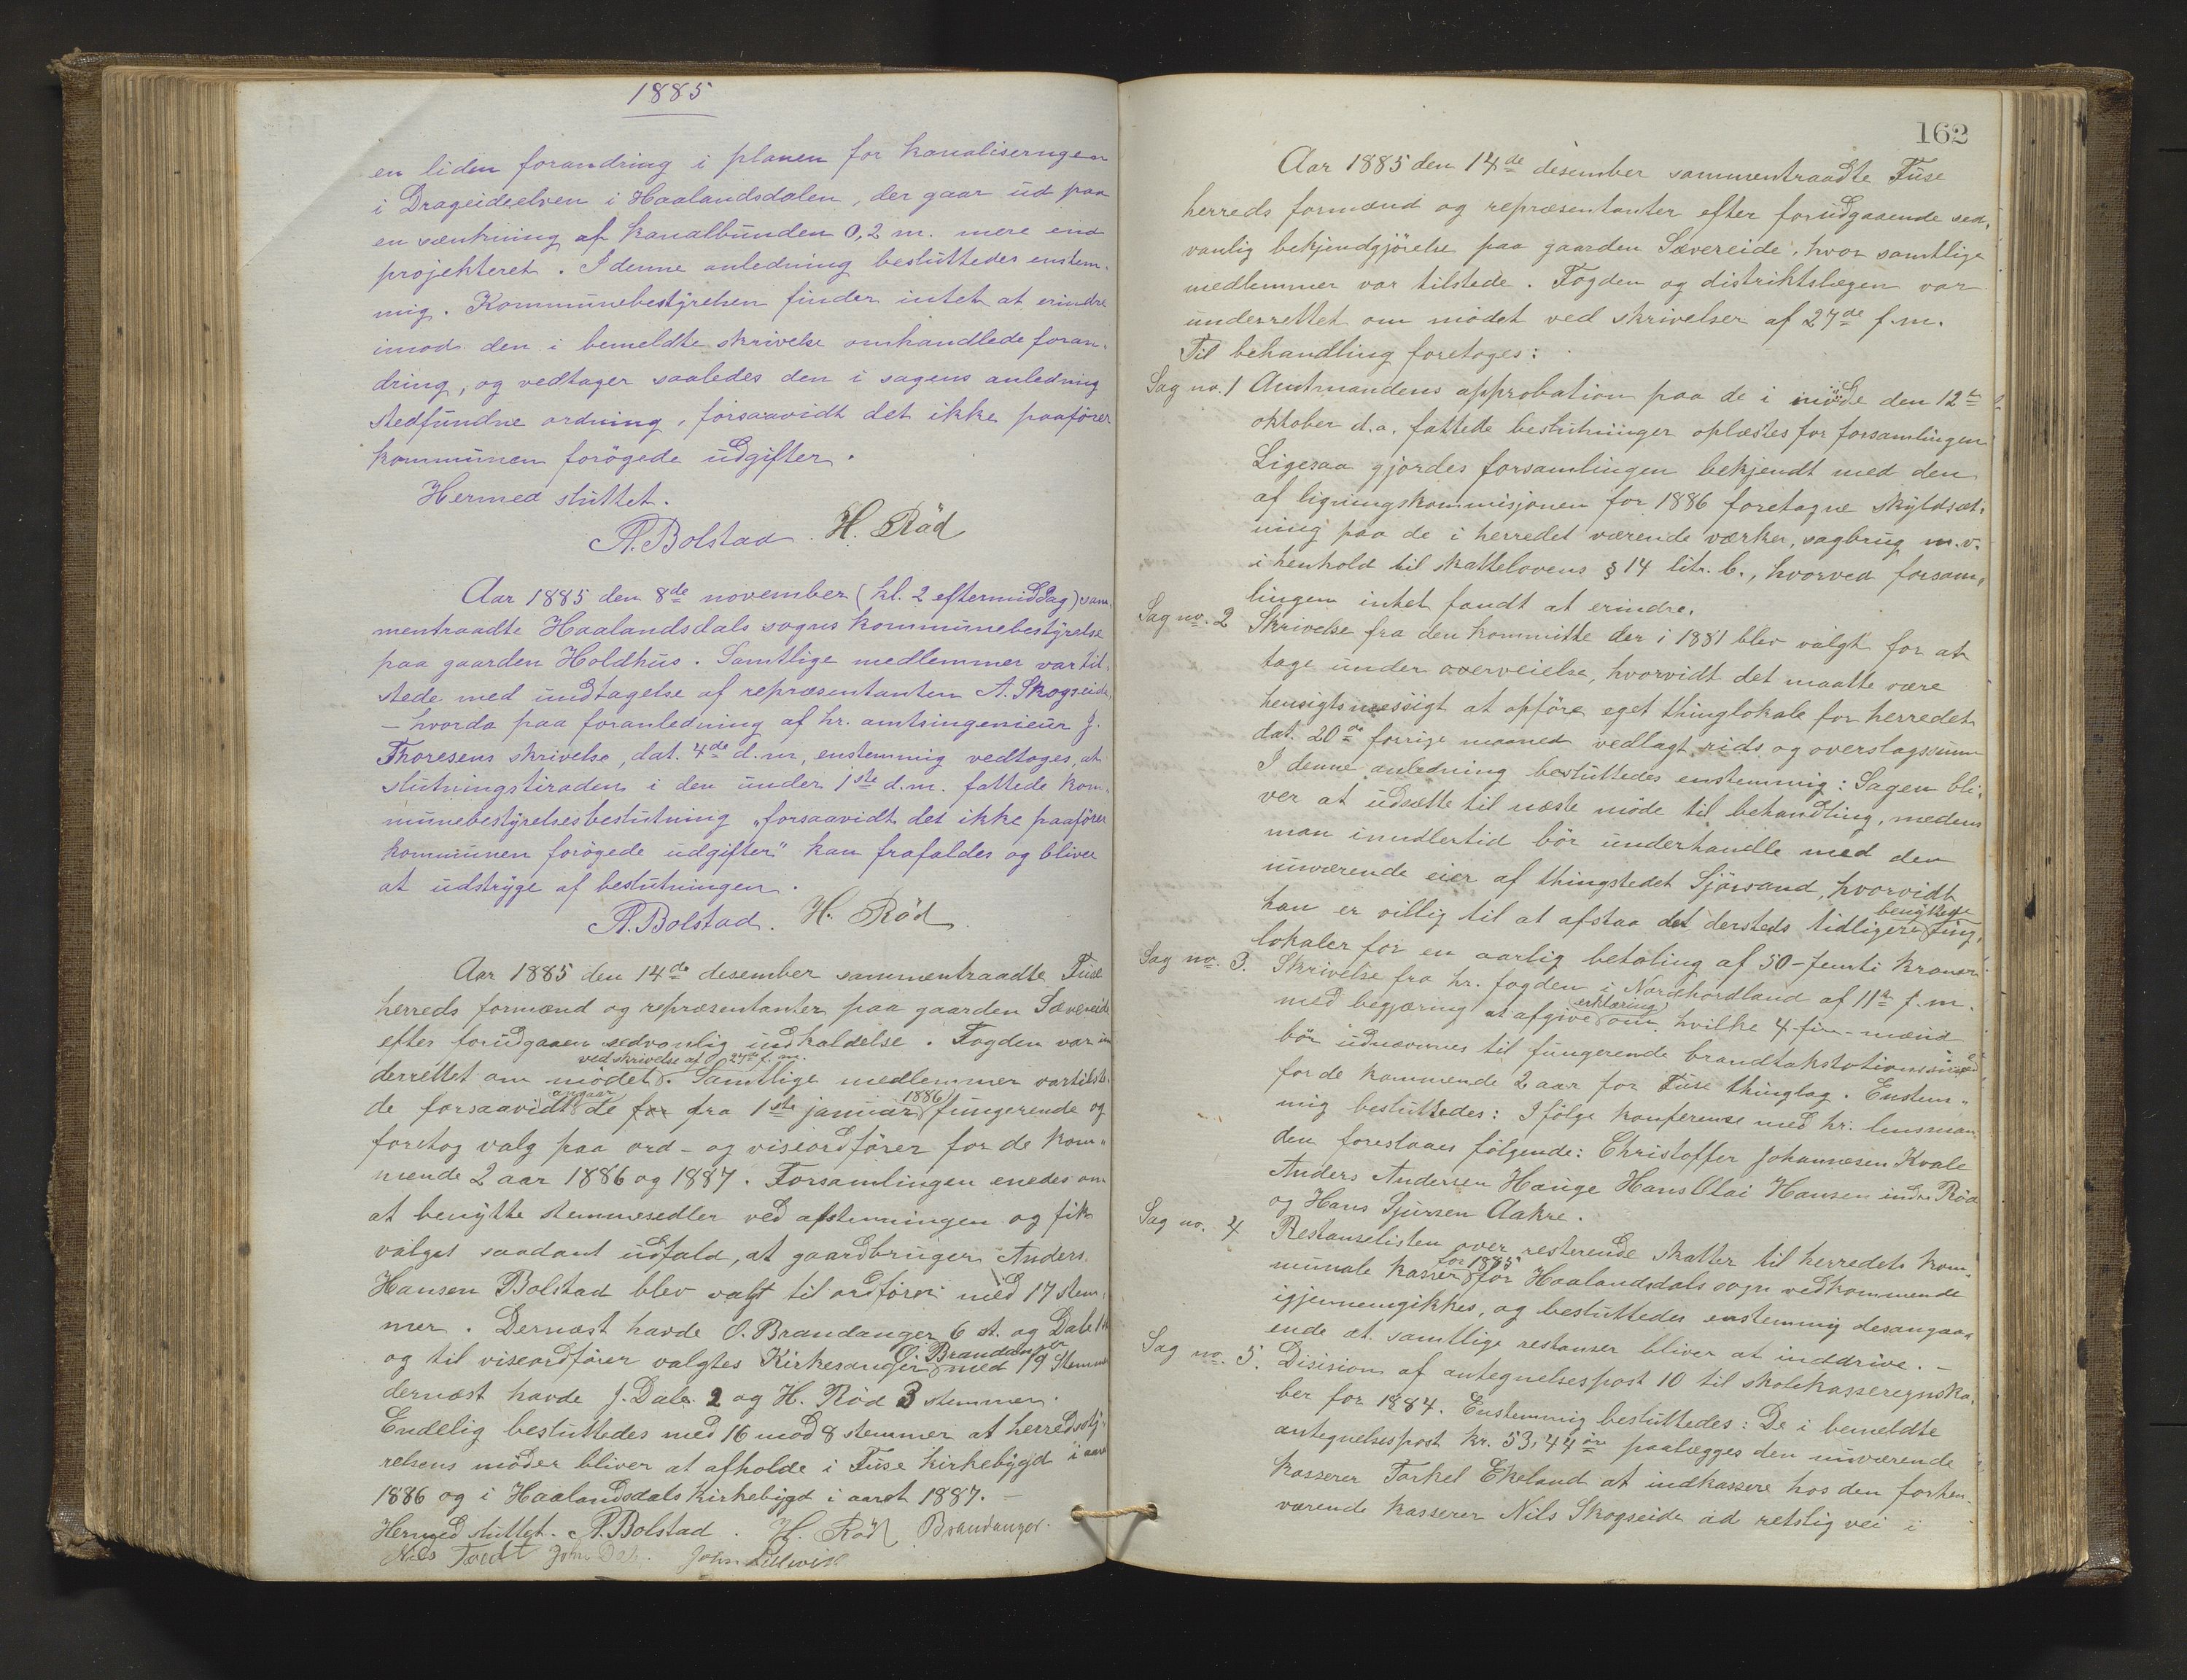 1885
en liden forandring i planen for kanaliseringen
i Drageidelven i Haalandsdalen, der gaar ud paa
en sænkning af kanalbunden 0,2 m. mere end
projekteret. I denne anledning besluttedes enstem-
mig. Kommunebestyrelsen finder intet at erindre
imod den i bemeldte skrivelse omhandlede foran-
dring, og vedtager saaledes den i sagens anledning
stedfundne ordning, forsaavidt det ikke paafører
kommunen forøgede udgifter.
Hermed sluttet.
A. Bolstad H. Röd
Aar 1885 den 8de november (kl. 2 eftermiddag) sam-
mentraadte Haalandsdals sogns kommunebestyrelse
paa gaarden Holdhus. Samtlige medlemmer var til-
stede med undtagelse af repræsentanten A. Skogseide
– hvorda paa foranledning af hr. amtsingeniør J.
Thoresens skrivelse, dat. 4de d.m., enstemmig vedtoges, at
slutningstiraden i den under 1ste d.m. fattede kom-
munebestyrelsesbeslutning „forsaavidt det ikke paafører
kommunen forøgede udgifter" kan frafaldes og bliver
at udstryge af beslutningen.
A. Bolstad. H. Röd
Aar 1885 den 14de desember sammentraadte Fuse
herreds formænd og repræsentanter paa gaarden Sævereide
efter forudgaaen sedvanlig indkaldelse. Fogden var un
ved skrivelse af 27de f.m.
derrettet om mødet. Samtlige medlemmer var tilste-
angaar 1886
de forsaavidt de for fra 1ste januar fungerende og
foretog valg paa ord- og viseordfører for de kom-
mende 2 aar 1886 og 1887. Forsamlingen enedes om
at benytte stemmesedler ved afstemningen og fik
valget saadant udfald, at gaardbruger Anders
Hansen Bolstad blev valgt til ordfører med 17 stem-
mer. Dernæst havde O. Brandanger 6 st. og Dale 1 st
O. Brandanger
og til viseordfører valgtes Kirkesanger med 19 Stemmer
dernæst havde J. Dale 2 og H. Röd 3 stemmer.
Endelig besluttedes med 16 mod 8 stemmer at herredssty-
relsens møder bliver at afholde i Fuse kirkebygd i aaret
1886 og i Haalandsdals Kirkebygd i aaret 1887. –
Hermed sluttet. A. Bolstad. H. Röd Brandanger.
Nils Tveidt John Dale. John Lillevik
162
Aar 1885 den 14de desember sammentraadte Fuse
herreds formænd og repræsentanter efter forudgaaende sed-
vanlig bekjendgjørelse paa gaarden Sævereide, hvor samtlige
medlemmer var tilstede. Fogden og distriktslægen var
underrettet om mødet ved skrivelser af 27de f.m.
Til behandling foretoges:
Sag no. 1 Amtmandens approbation paa de i møde den 12te
oktober d.a. fattede beslutninger oplæstes for forsamlingen
Ligesaa gjordes forsamlingen bekjendt med den
af ligningskommisjonen for 1886 foretagne skyldsæt-
ning paa de i herredet værende værker, sagbrug m.v.
i henhold til skattelovens § 14 litr. b., hvorved forsam-
lingen intet fandt at erindre.
Sag no. 2 Skrivelse fra den kommitte der i 1881 blev valgt for at
tage under overveielse, hvorvidt det maatte være
hensigtsmessigt at opføre eget thinglokale for herredet
dat. 20de forrige maaned vedlagt rids og overslagssum
I denne anledning besluttedes enstemmig: Sagen bli-
ver at udsætte til næste møde til behandling, medens
man imidlertid bør underhandle med den
nuværende eier af thingstedet Sjøvsand, hvorvidt
benyttede
han er villig til at afstaa det dersteds tidligere ting-
lokaler for en aarlig betaling af 50 - femti kroner.
Sag no. 3. Skrivelse fra hr. fogden i Nordhordland af 11te f.m.
erklæring
med begjæring at afgive om hvilke 4 - fire - mænd
bør udnævnes til fungerende brandtakstationsmænd
for de kommende 2 aar for Fuse thinglag. Enstem-
mig besluttedes: I følge konferense med hr. lensman-
den foreslaaes følgende: Christoffer Johannesen Kvale
Anders Andersen Hauge Hans Olai Hansen indre Röd
og Hans Sjursen Aakre.
Sag no. 4 Restanselisten over resterende skatter til herredets kom-
for 1885
munale kasser for Haalandsdals sogn vedkommende
igjennemgikkes, og besluttedes enstemmig desangaa-
ende at samtlige restanser bliver at inddrive. –
Sag no. 5. Disision af antegnelsespost 10 til skolekasseregnska-
ber for 1884. Enstemmig besluttedes: De i bemeldte
antegnelsespost kr. 53,44 øre paalægges den nuværende
kasserer Torkel Ekeland at indkassere hos den forhen-
værende kasserer Nils Skogseide ad retslig vei i